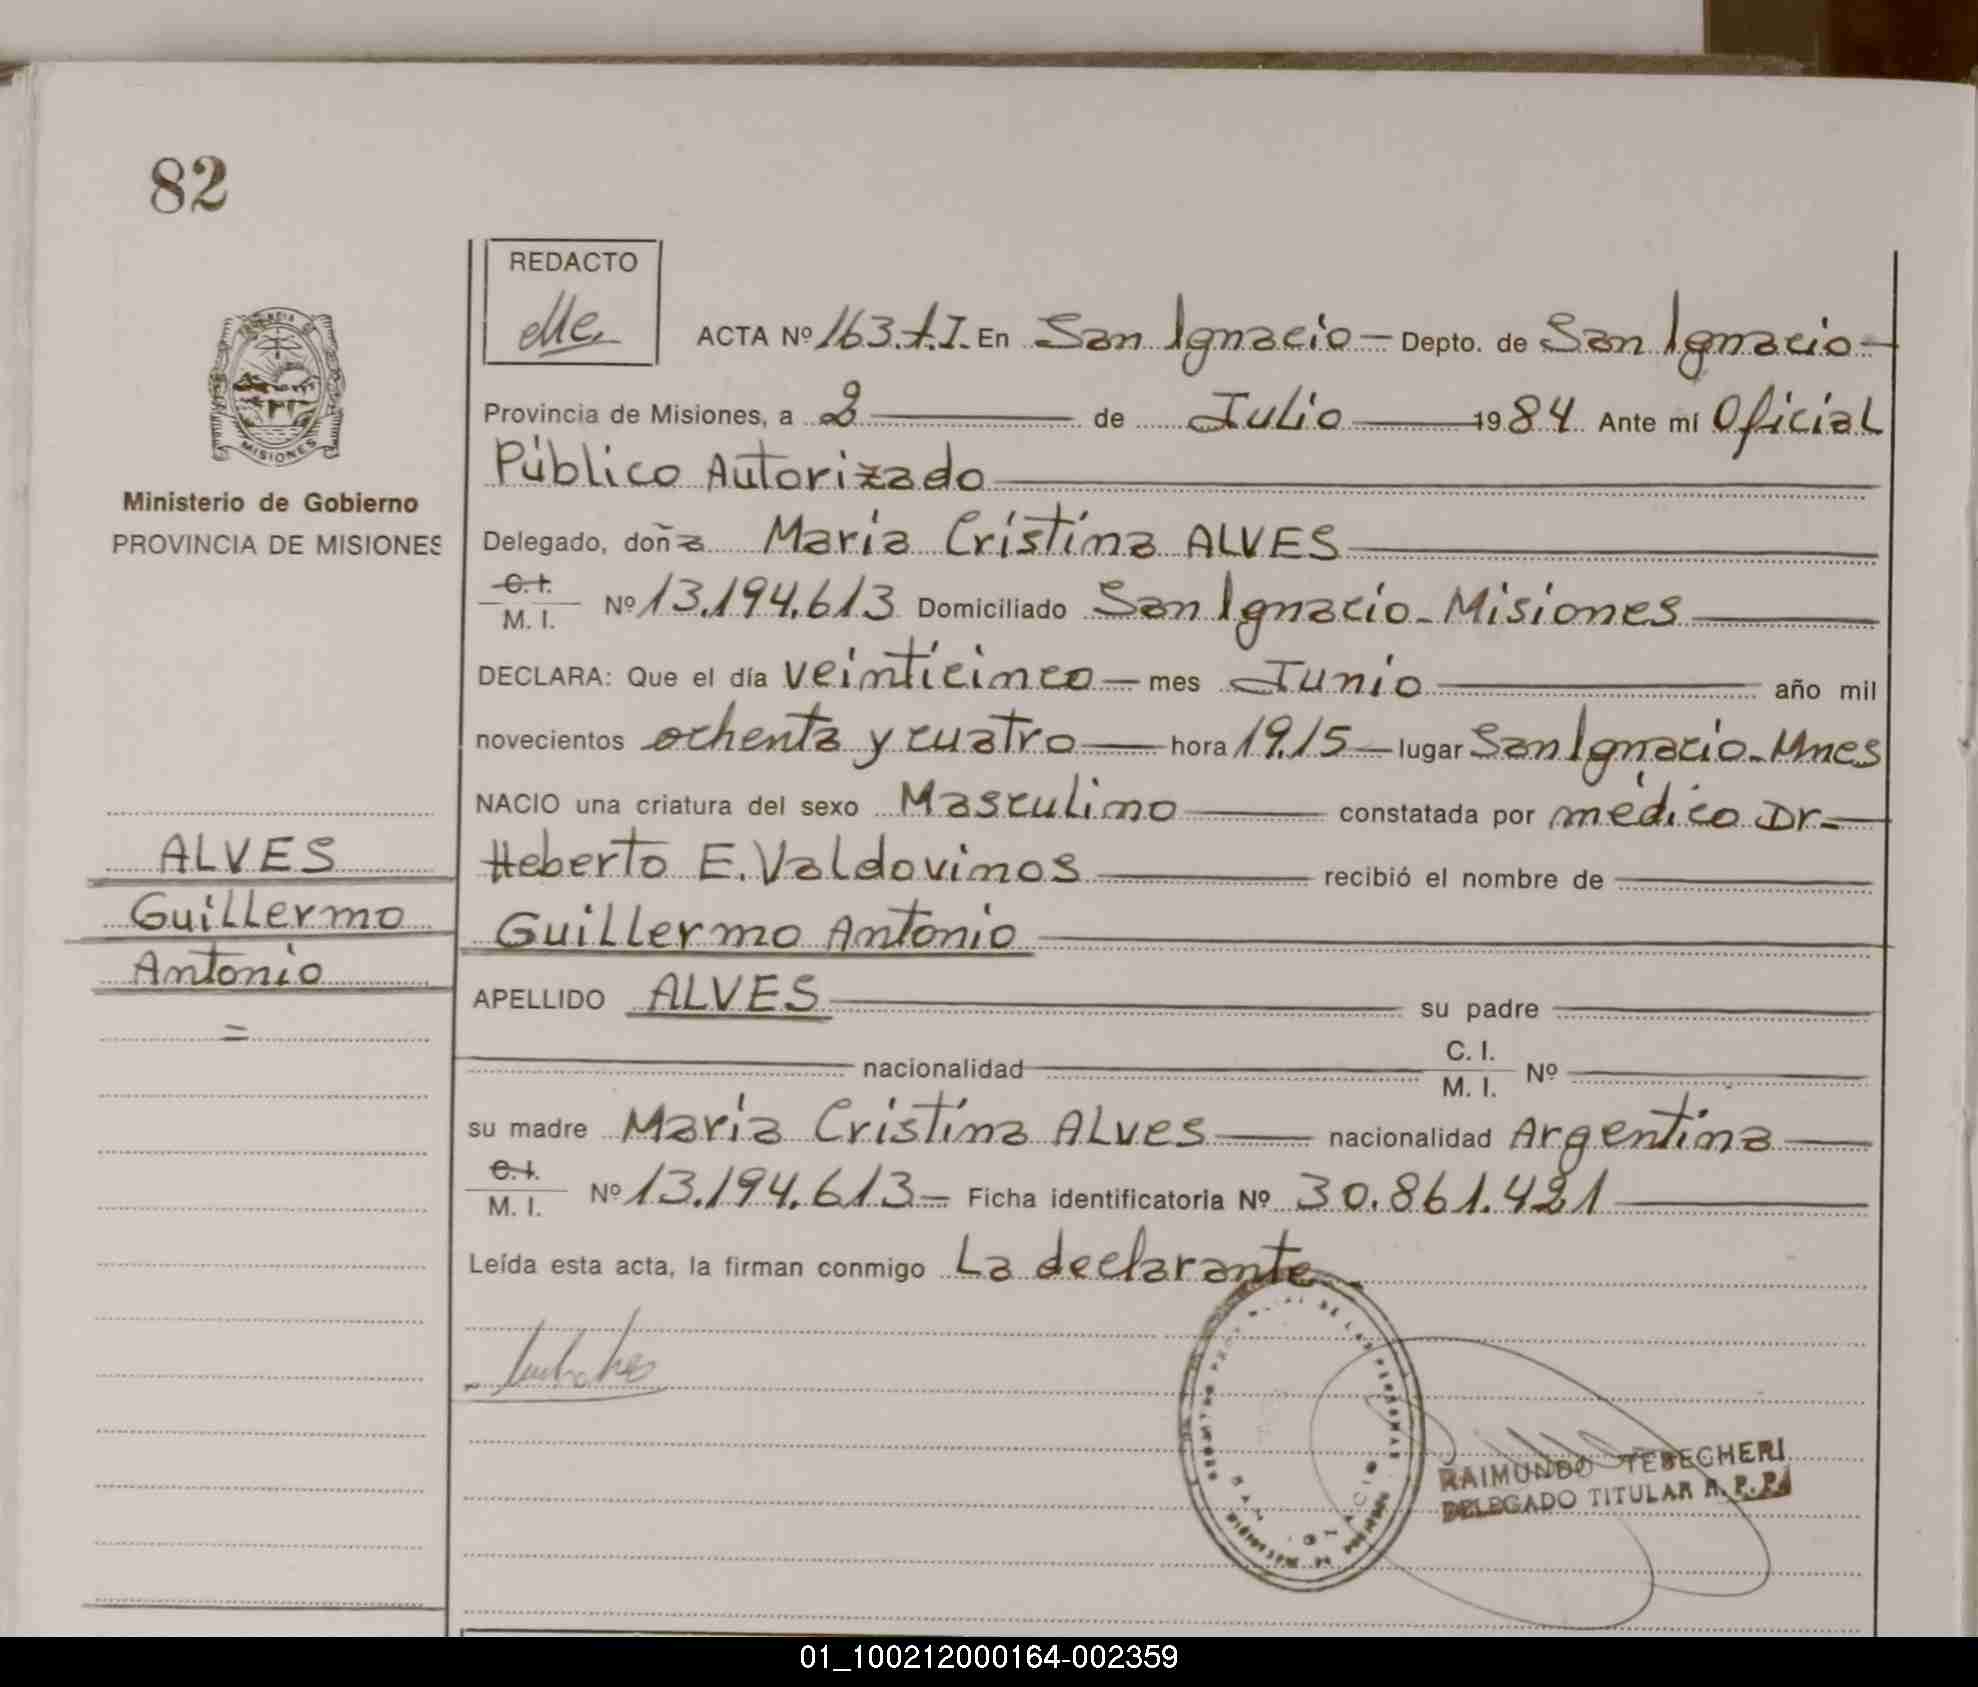 82
REDACTO
ACTA Nº 163.t.I. En San Ignacio - Depto. de San Ignacio -
Provincia de Misiones, a 2 de Julio 1984. Ante mí Oficial
Público Autorizado
Delegado, doña María Cristina ALVES
C.I. M. I. Nº 13.194.613 Domiciliado San Ignacio - Misiones
DECLARA: Que el día veinticinco - mes Junio año mil
novecientos ochenta y cuatro hora 19.15 - lugar San Ignacio - Mnes
NACIO una criatura del sexo Masculino constatada por médico Dr.
Heberto E. Valdovinos recibió el nombre de
Guillermo Antonio
APELLIDO ALVES su padre
nacionalidad C. I. M. I. Nº
su madre María Cristina ALves nacionalidad Argentina
C.I. M. I. Nº 13.194.613 - Ficha identificatoria Nº 30.861.421
Leída esta acta, la firman conmigo La declarante.
PROVINCIA DE
MISIONES
Ministerio de Gobierno
PROVINCIA DE MISIONES
ALVES
Guillermo
Antonio
=
DE LAS PERSONAS
SAN IGNACIO
RAIMUNDO TEBECHERI
DELEGADO TITULAR R. P. P.
01_100212000164-002359